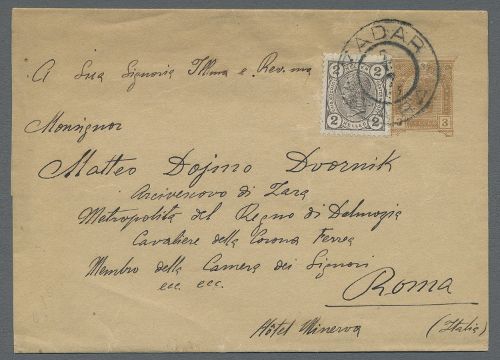 ZADAR
ZARA
2 2
2 HELLER 2
3
A Sua Signoria Illma e Rev.ma
Monsignor
Matteo Dojmo Dvornik
Arcivescovo di Zara
Metropolita del Regno di Dalmazia
Cavaliere della Corona Ferrea
Membro della Camera dei Signori
ecc. ecc.
Roma
Hôtel Minerva (Italia)